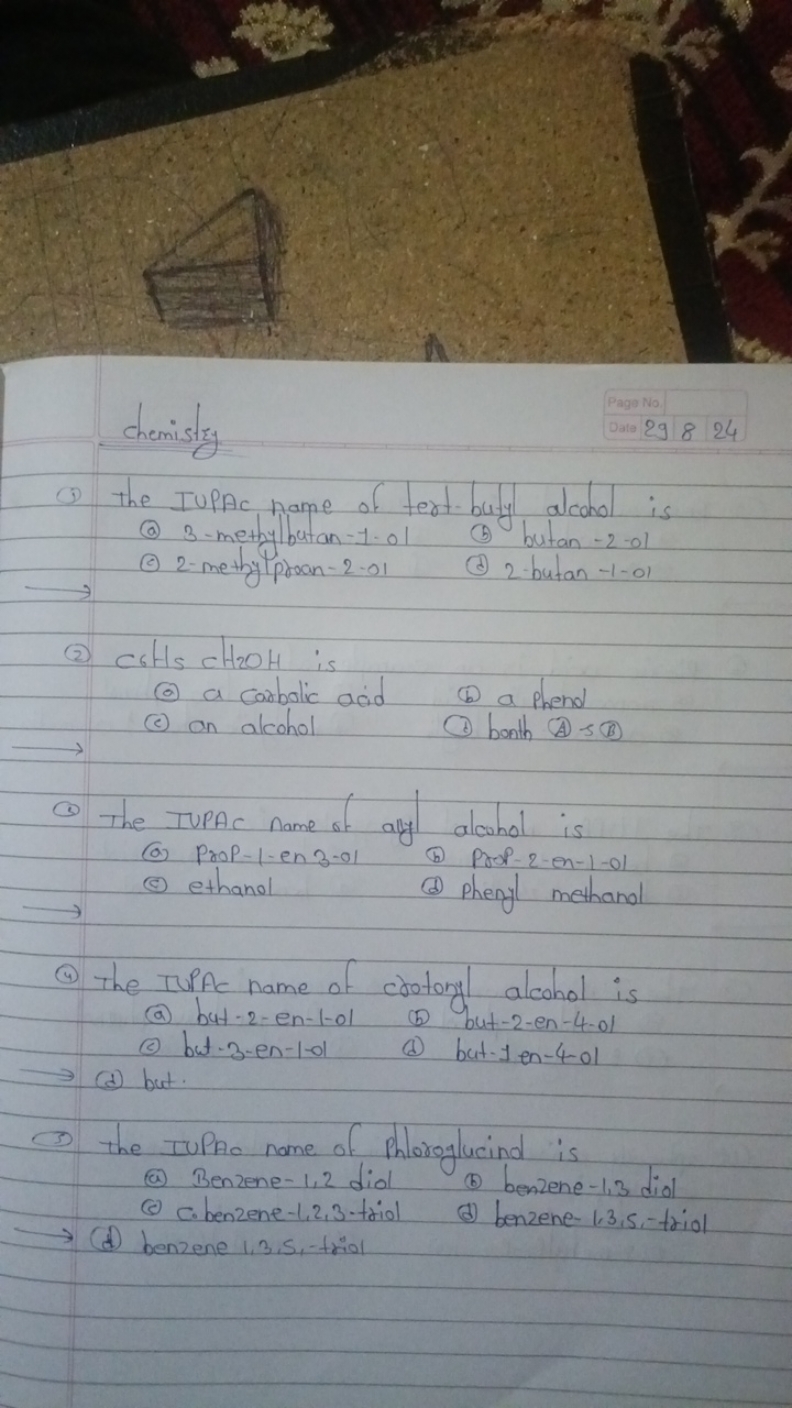 Page No.
Date 29 8 24
chemistry
① the IUPAC name of tert-butyl alcohol is
ⓐ 3-methylbutan-1-ol ⓑ butan-2-ol
ⓒ 2-methylproan-2-ol ⓓ 2-butan-1-ol
→
② C6H5 CH2OH is
ⓐ a carbolic acid ⓑ a phenol
ⓒ an alcohol ⓓ bonth Ⓐ & Ⓑ
→
③ The IUPAC name of allyl alcohol is
ⓐ prop-1-en 3-ol ⓑ prop-2-en-1-ol
ⓒ ethanol ⓓ phenyl methanol
→
④ The IUPAC name of crotonyl alcohol is
ⓐ but-2-en-1-ol ⓑ but-2-en-4-ol
ⓒ but-3-en-1-ol ⓓ but-1 en-4-ol
→ ⓓ but.
⑤ the IUPAC name of Phloroglucinol is
ⓐ Benzene-1,2 diol ⓑ benzene-1,3 diol
ⓒ c. benzene-1,2,3-triol ⓓ benzene-1,3,5,-triol
→ ⓓ benzene 1,3,5,-triol